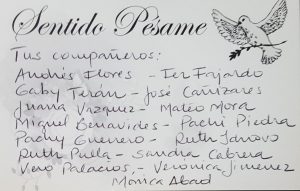 Sentido Pésame
Tus compañeros:
Andrés Flores - Fer Fajardo
Gaby Terán - José Cañizares
Juana Vazquez - Mateo Mora
Miguel Benavides - Pachi Piedra
Pachy Guerrero - Ruth
Ruth Puella - Sandra Cabrera
Vero Palacios - Verónica Jimenez
Monica Abad